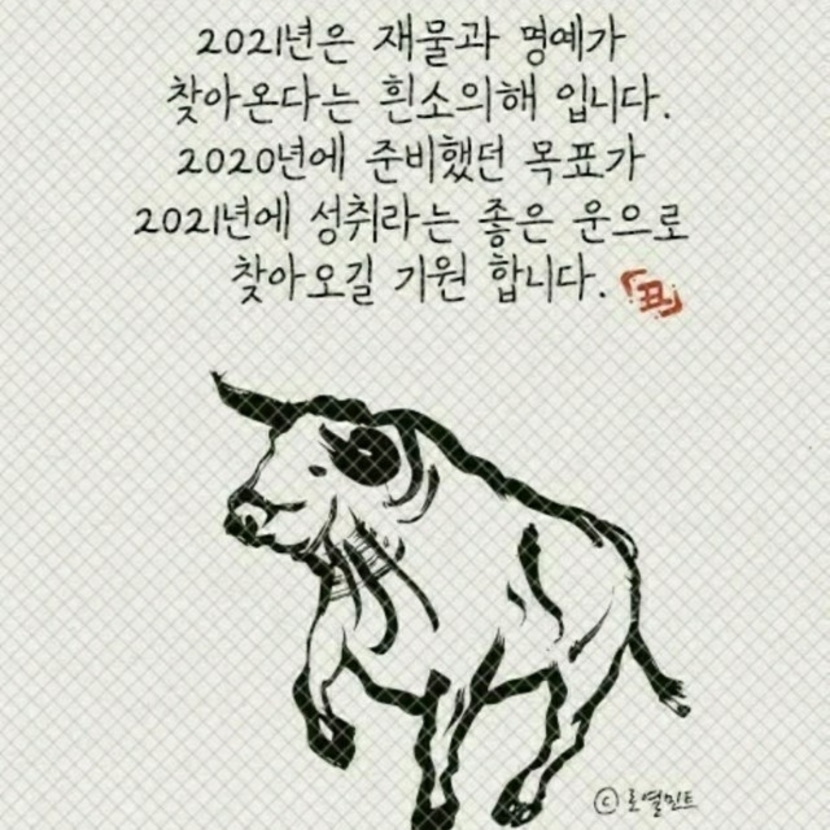 2021년은 재물과 명예가
찾아온다는 흰소의해 입니다.
2020년에 준비했던 목표가
2021년에 성취라는 좋은 운으로
찾아오길 기원 합니다.
丑
ⓒ 로열민트